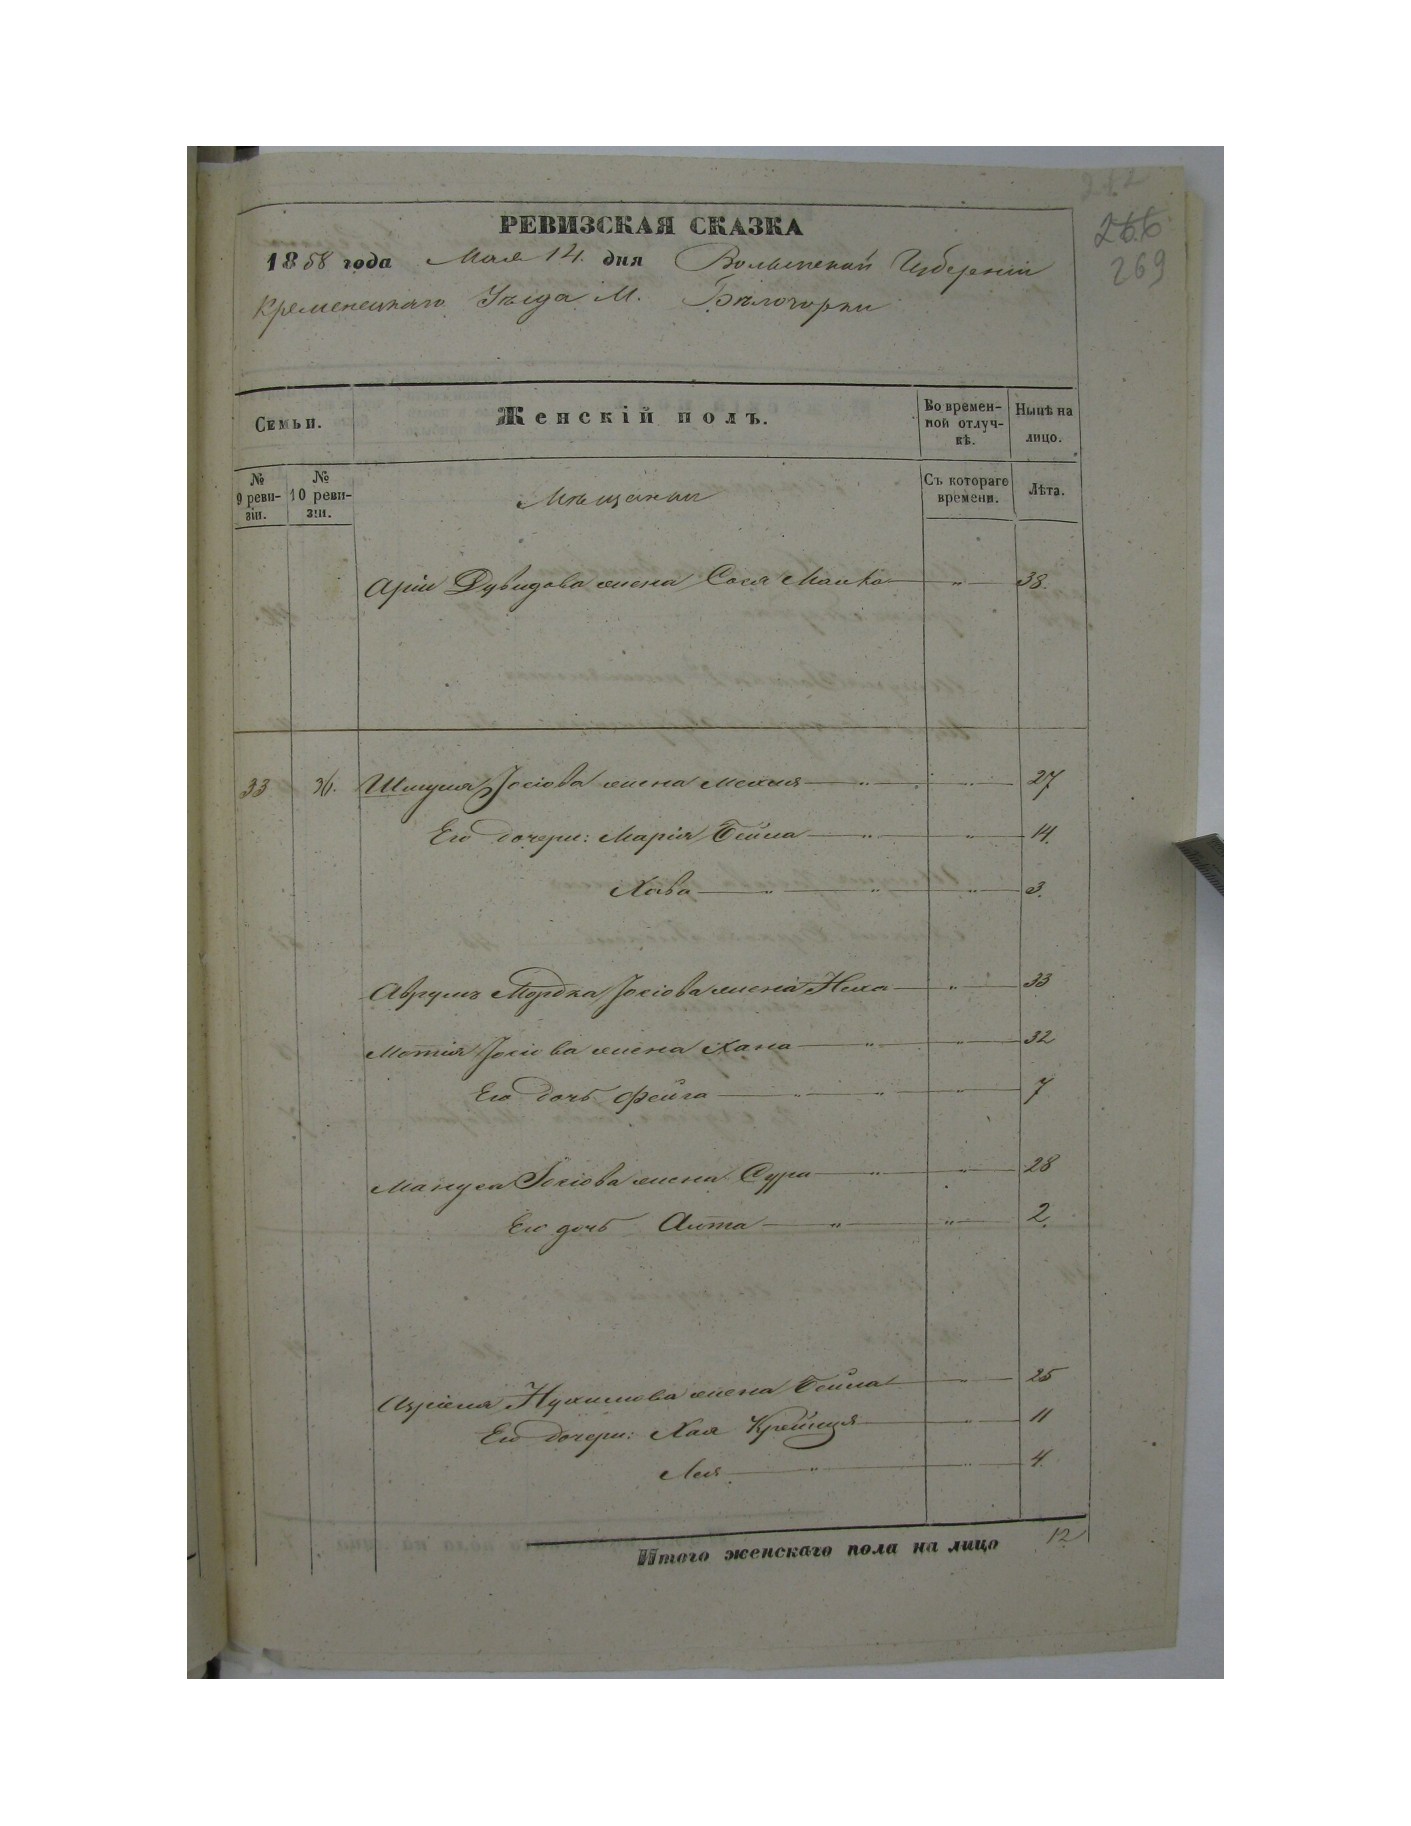 272
266
269
РЕВИЗСКАЯ СКАЗКА
1858 года Мая 14. дня Волынской Губерніи
Кременецкаго Уѣзда М. Бѣлогорки
Семьи.
Женскій полъ.
Во времен-
ной отлуч-
кѣ.
Нынѣ на
лицо.
№
9 реви-
зіи.
№
10 реви-
зіи.
Мѣщанъ
Съ котораго
времени.
Лѣта.
Арiи Дувидова жена Сося Малка — „ — 38.
33 36. Шмуля Іосіова жена Мехля — „ — „ — 27
Его дочери: Марія Бейла — „ — „ — 14.
Хава — „ — „ — „ — 3.
Аврумъ Мордка Іосіова жена Неха — „ — 33
Мотія Іосіова жена Хана — „ — „ — 32
Его дочь Фейга — „ — „ — „ — 7
Мануса Іосіова жена Сура — „ — „ — 28
Его дочь Алта — „ — „ — 2.
Азріеля Нухимова жена Бейла — „ — 25
Его дочери: Хая Крейнця — „ — 11
Лея — „ — „ — 4.
Итого женскаго пола на лицо 12